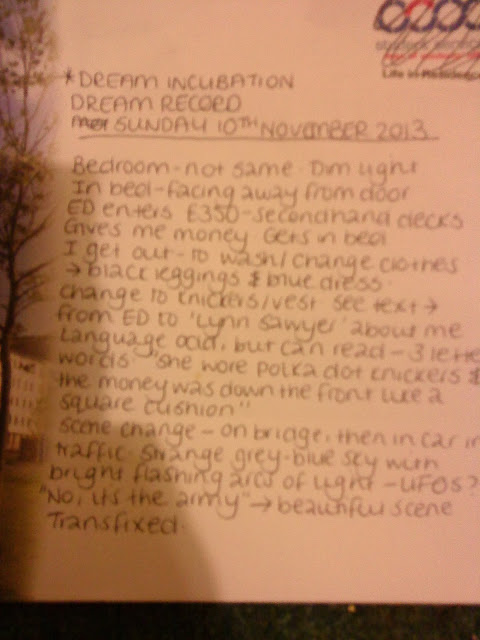 Life in Residence
*DREAM INCUBATION
DREAM RECORD
SUNDAY 10TH NOVEMBER 2013
Bedroom - not same. Dim light
In bed - facing away from door
ED enters £350 - secondhand decks
Gives me money. Gets in bed
I get out - to wash/change clothes
→ black leggings & blue dress.
change to knickers/vest see text →
from ED to 'Lynn Sawyer' about me
Language odd, but can read - 3 lette
words "she wore polka dot knickers &
the money was down the front like a
square cushion"
Scene change - on bridge, then in car in
traffic. Strange grey-blue sky with
bright flashing arcs of light - UFOs?
"No, its the army" → beautiful scene
Transfixed.